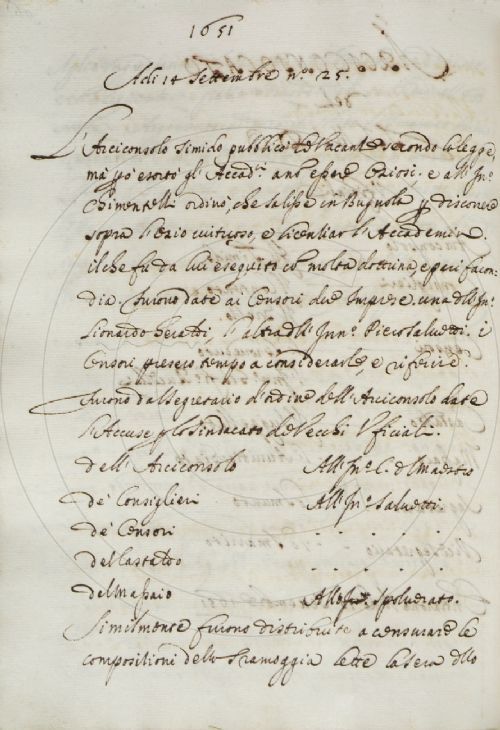 1651
Adi 14 Settembre n.º 25.
L'Arciconsolo rimido pubblico le Vacante secondo la legge,
ma poi esortò gl'Accad.ⁱ a nō essere Oziosi. e all'In.º
Chimentelli ordinò, che salisse in Bugnola p discorrere
sopra l'Ozio virtuoso, e licentiar l'Accademia.
il che fu da lui eseguito cō molta dottrina, e pari facon-
dia. furono date ai Censori due Imprese, una dell'In.º
Lionardo l'altra dell'Inn.º Piero Salvetti. i
Censori presero tempo a considerarle, e riferire.
furono dal Segretario d'ordine dell'Arciconsolo date
l'Accuse p lo sindacato de Vecchi Ufficiali.
dell'Arciconsolo All'In.º C. d. Maestro
de' Consiglieri All'In.º Salvetti.
de' Censori . . . .
del Castaldo . . . .
del Massaio Allo Spolverato.
Similmente furono distribuite a censurare le
compositioni della Tramoggia lette la sera dello